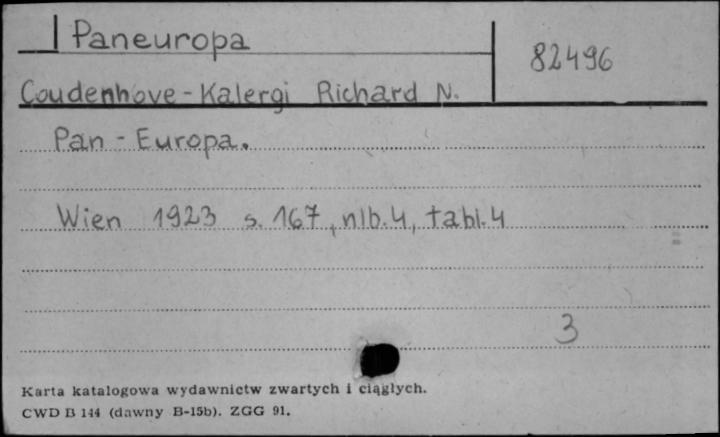 Paneuropa
82496
Coudenhove-Kalergi Richard N.
Pan-Europa.
Wien 1923 s. 167, nlb. 4, tabl. 4
3
Karta katalogowa wydawnictw zwartych i ciągłych.
CWD B 144 (dawny B-15b). ZGG 91.